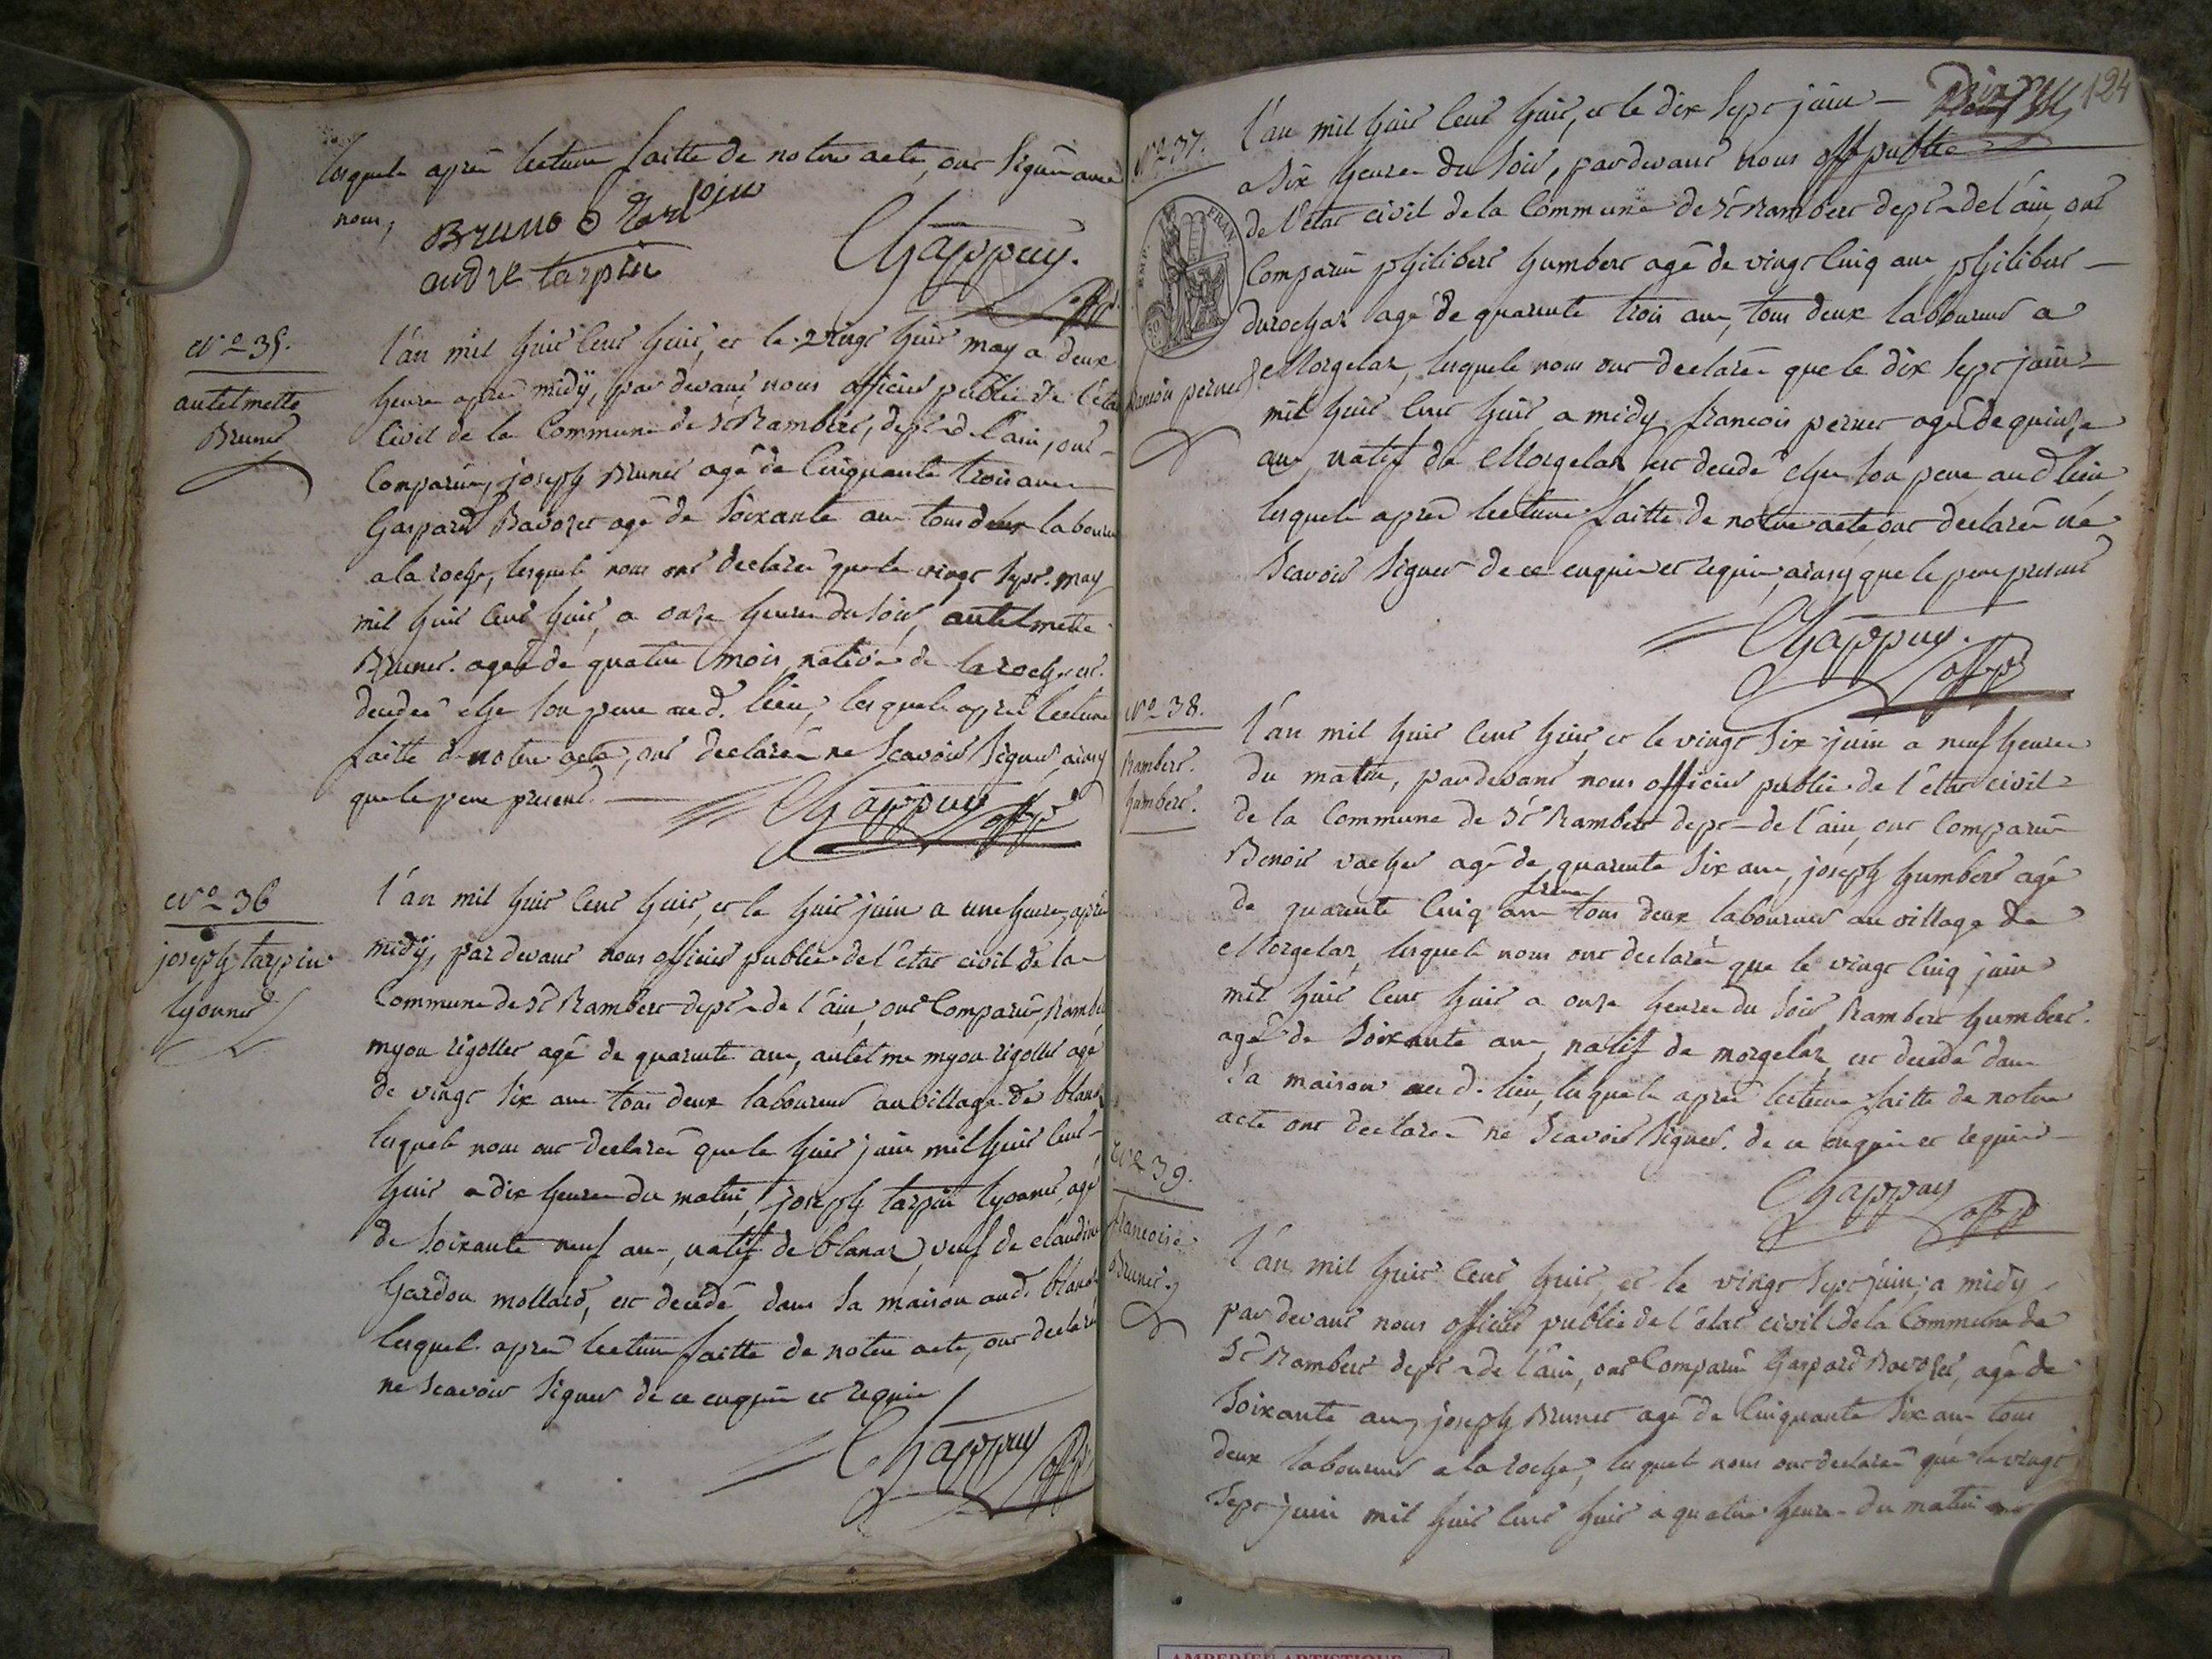 lesquels aprês lecture faitte de notre acte, ont signês avec
nous,
Bruno Tarpin
andre tarpin
Chappuy.
offp.
No 35.
antelmette
Brunet
l'an mil huit cent huit, et le vingt huit may a deux
heures aprês midÿ, par devant nous officier public de l'état
Civil de la Commune de St Rambert, dept de l'ain, ont
Comparûs, joseph Brunet agé de Cinquante trois ans
Gaspard Bavozet agé de soixante ans tous deux laboureurs
a la roche, lesquels nous ont declarés que le vingt sept may
mil huit cent huit, a onze heures du soir, antelmette
Brunet. agée de quatre mois, native de laroche est.
decedeé chez son pere aud. lieu, lesquels aprês lecture
faitte de notre acte, ont declarés ne scavoir signer, ainsy
que le pere present.
Chappuy offp
No 36
joseph tarpin
lyonnet
l'an mil huit cent huit, et le huit juin a une heure, aprês
midÿ, par devant nous officier public de l'état civil de la
Commune de St Rambert dept de l'ain, ont Comparûs, Rambert
myon rigollet agé de quarante ans, antelme myon rigollet agé
de vingt six ans tous deux laboureurs au village de blanaz
lesquels nous ont declarés que le huit juin mil huit cent
huit a dix heures du matin, joseph tarpin lyonnet, agé
de soixante neuf ans, natif de blanaz, veuf de claudine
Gardon mollard, est decedé dans sa maison aud. blanaz
lesquels aprês lecture faitte de notre acte, ont declarés
ne scavoir signer de ce enquis et requis
Chappuy offp
124
Dix
No 37.
EMP. FRAN.
françois pernet
l'an mil huit cent huit, et le dix sept juin
a six heures du soir, par devant nous off public
de l'état civil de la Commune de St Rambert dept de l'ain, ont
Comparûs philibert humbert agé de vingt Cinq ans philibert
durochat agé de quarante trois ans, tous deux laboureurs a
Morgelaz, lesquels nous ont declarés que le dix sept juin
mil huit cent huit, a midy, francois pernet agé de quinze
ans, natif de Morgelaz, est decedé chez son pere aud lieu
lesquels aprês lecture faitte de notre acte, ont declarés ne
Scavoir signer de ce enquis et requis, ainsy que le pere present
Chappuy.
offp
No 38.
Rambert.
humbert.
l'an mil huit cent huit, et le vingt six juin a neuf heures
du matin, par devant nous officier public de l'état civil
de la Commune de St Rambert dept de l'ain, ont Comparûs
Benoit vacher agé de quarante six ans, joseph humbert agé
de quarante Cinq ans frere tous deux laboureurs au village de
Morgelaz, lesquels nous ont declarés que le vingt Cinq juin
mil huit cent huit a onze heures du soir Rambert humbert.
agé de soixante ans, natif de morgelaz, est decedé dans
sa maison aud. lieu, lesquels aprês lecture faitte de notre
acte ont declarés ne scavoir signer. de ce enquis et requis
Chappuy
offp
No 39.
francoise
Brunet.
l'an mil huit cent huit, et le vingt sept juin, a midÿ
par devant nous officier public de l'état civil de la Commune de
St Rambert dept de l'ain, ont Comparûs Gaspard Bavozet, agé de
soixante ans, joseph Brunet agé de Cinquante six ans tous
deux laboureurs a la roche, lesquels nous ont declarés que le vingt
sept juin mil huit cent huit a quatre heures du matin